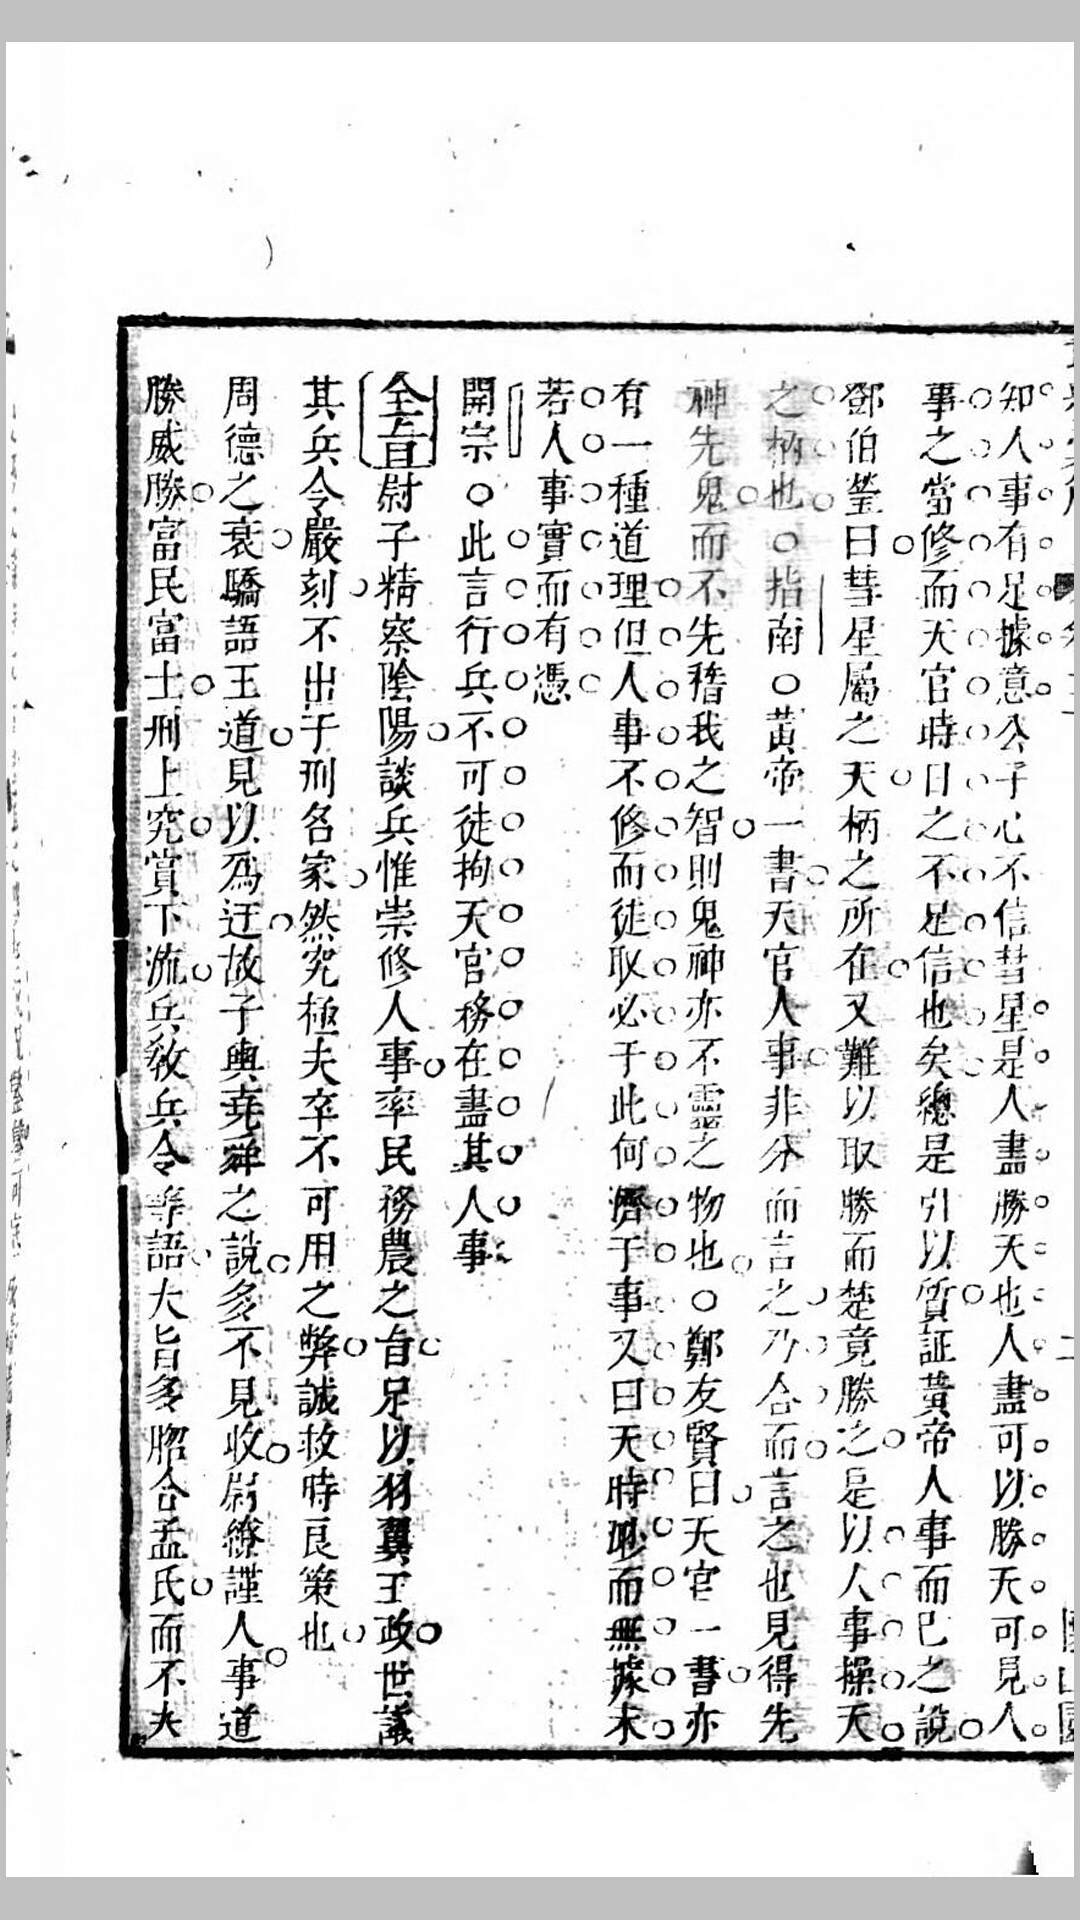 知人事有足據意公子心不信彗星是人盡勝天也人盡可以勝天可見人
事之當修而天官時日之不足信也矣總是引以質証黃帝人事而已之說
鄧伯瑩曰彗星屬之天柄之所在又難以取勝而楚竟勝之是以人事操天
之柄也○指南○黃帝一書天官人事非分而言之乃合而言之也見得先
神先鬼而不先稽我之智則鬼神亦不靈之物也○鄭友賢曰天官一書亦
有一種道理但人事不修而徒取必于此何濟于事又曰天時眇而無據未
若人事實而有憑
開宗○此言行兵不可徒拘天官務在盡其人事
全旨尉子精察陰陽談兵惟崇修人事率民務農之旨足以羽翼王政世議
其兵令嚴刻不出于刑名家然究極夫卒不可用之弊誠救時良策也
周德之衰驕語王道見以為迂故子輿堯舜之說多不見收尉繚謹人事道
勝威勝富民富士刑上究賞下流兵教兵令等語大旨多脗合孟氏而不大